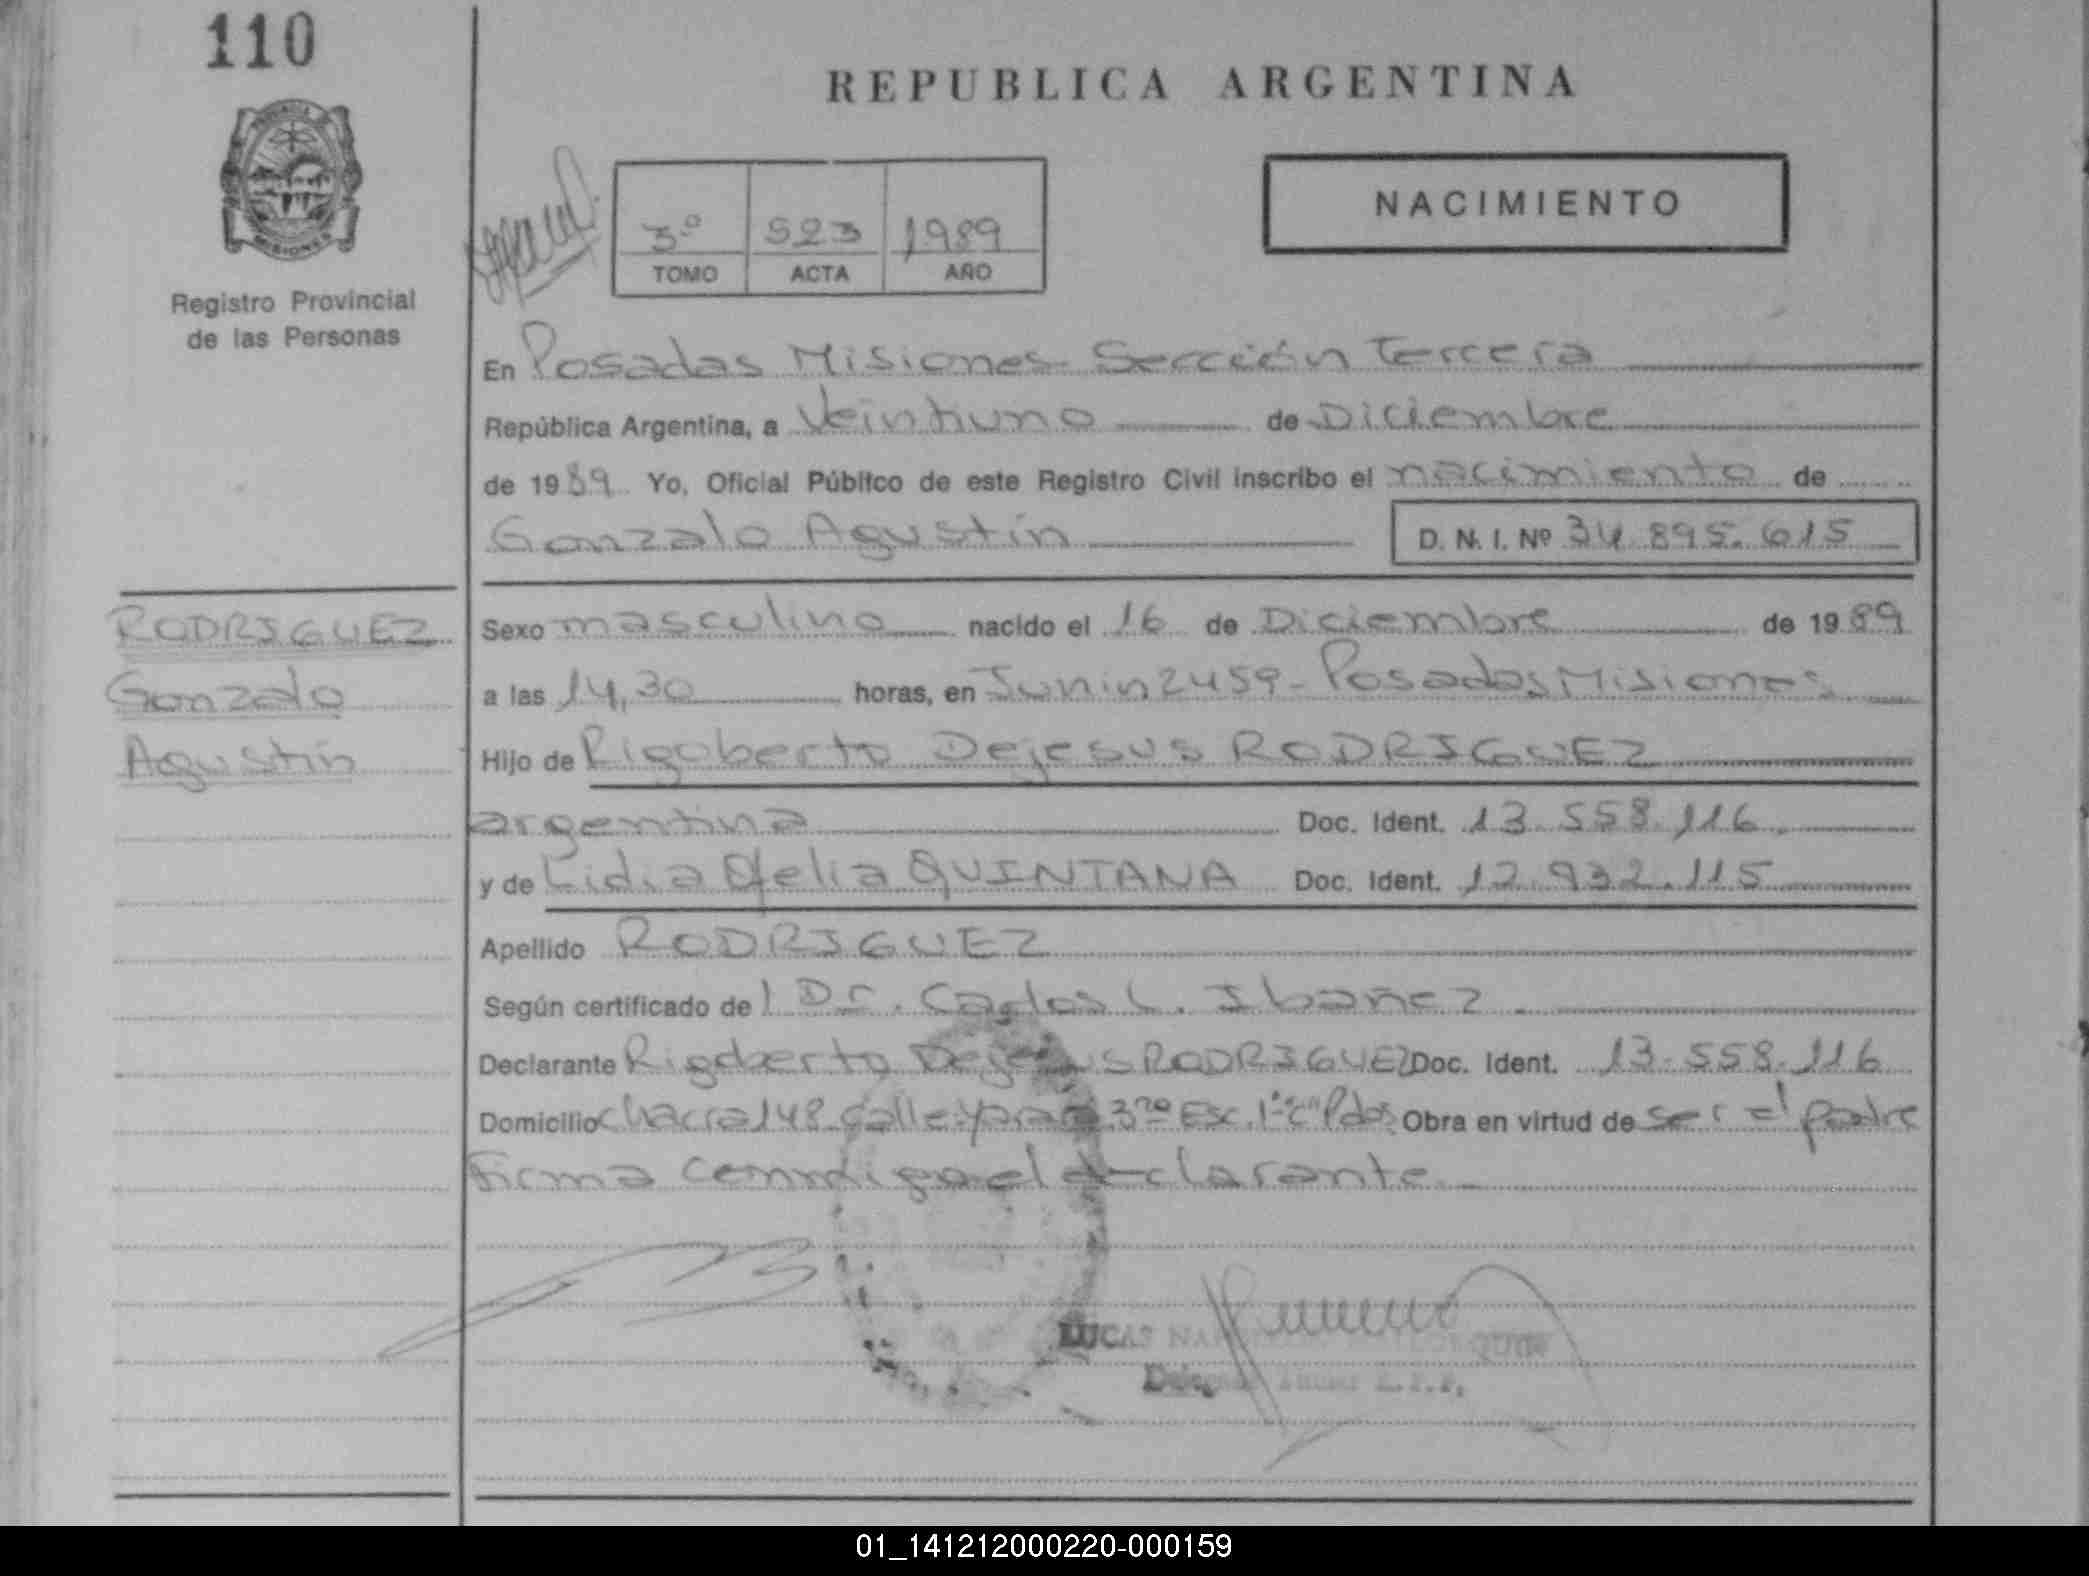 110
REPUBLICA ARGENTINA
NACIMIENTO
MISIONES
3º 523 1989
TOMO ACTA AÑO
Registro Provincial
de las Personas
En Posadas Misiones Sección Tercera
República Argentina, a Veintiuno de Diciembre
de 1989 Yo, Oficial Público de este Registro Civil inscribo el nacimiento de
Gonzalo Agustín D. N. I. Nº 34.895.615
RODRIGUEZ
Gonzalo
Agustín
Sexo masculino nacido el 16 de Diciembre de 1989
a las 14,30 horas, en Junin 2459 - Posadas Misiones
Hijo de Rigoberto Dejesus RODRIGUEZ
argentina Doc. Ident. 13.558.116
y de Lidia Ofelia QUINTANA Doc. Ident. 12.932.115
Apellido RODRIGUEZ
Según certificado de l Dr. Carlos L. Ibañez
Declarante Rigoberto Dejesus RODRIGUEZ Doc. Ident. 13.558.116
Domicilio chacra 148 Calle 3ro Esc. 1º "C" Pdas Obra en virtud de ser el padre
Firma conmigo el declarante
LUCAS
Delegado R.P.P.
01_141212000220-000159